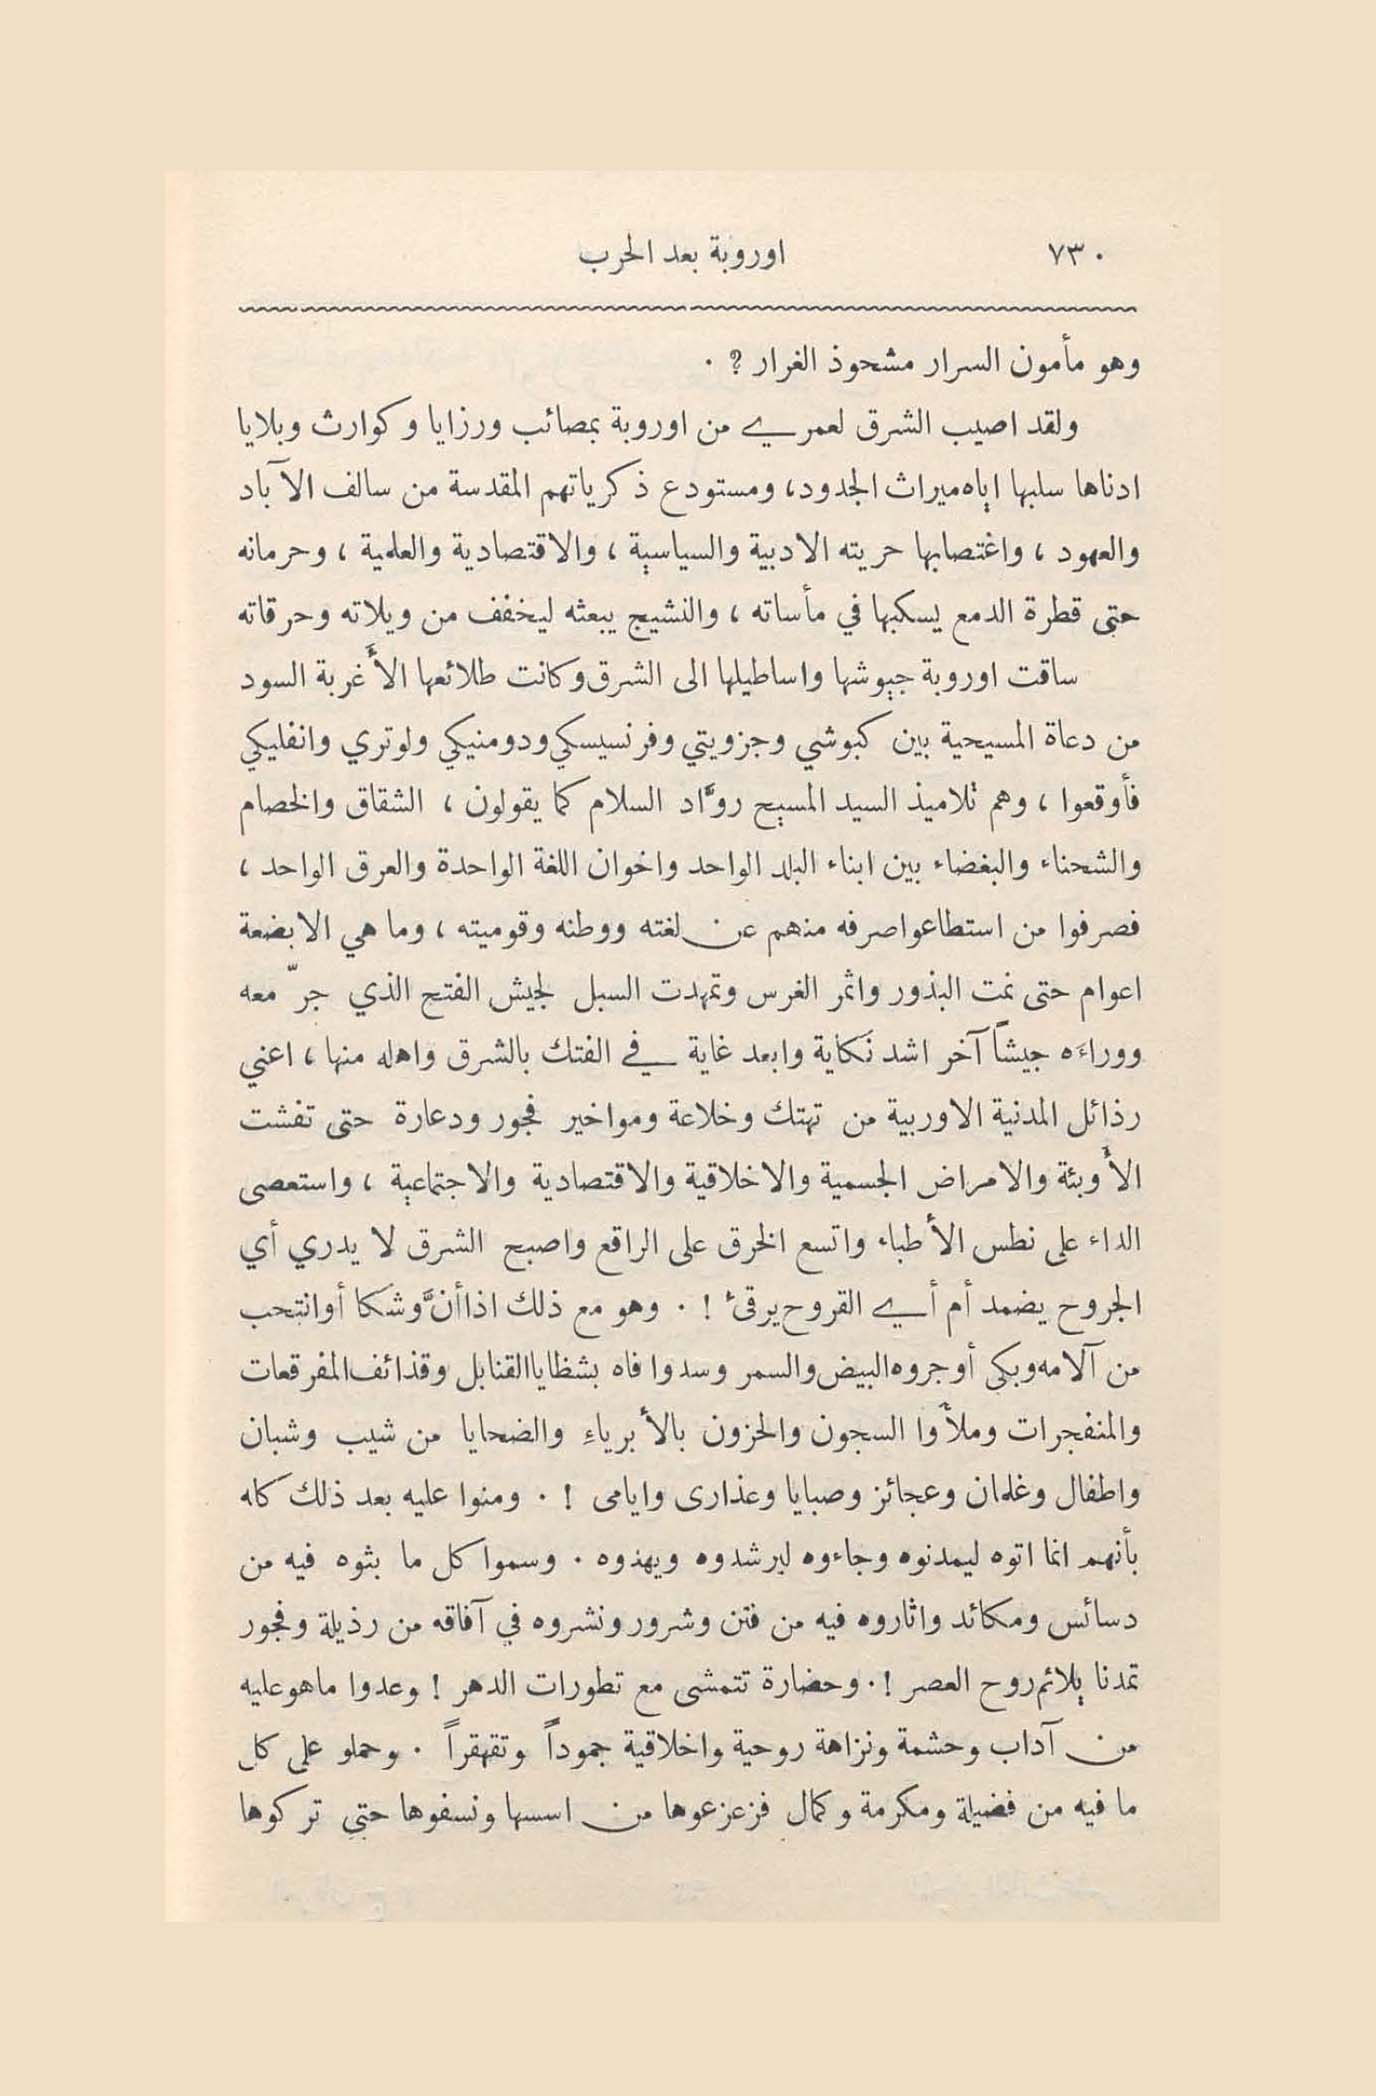 ٧٣٠ اوروبة بعد الحرب
وهو مأمون السرار مشحوذ الغرار ? .
ولقد اصيب الشرق لعمري من اوروبة بمصائب ورزايا وكوارث وبلايا
ادناها سلبها اياه ميراث الجدود، ومستودع ذكرياتهم المقدسة من سالف الآباد
والعهود ، واغتصابها حريته الادبية والسياسية ، والاقتصادية والعلمية ، وحرمانه
حتى قطرة الدمع يسكبها في مأساته ، والنشيج يبعثه ليخفف من ويلاته وحرقاته
ساقت اوروبة جيوشها واساطيلها الى الشرق وكانت طلائعها الأغربة السود
من دعاة المسيحية بين كبوشي وجزويتي وفرنسيسكي ودومنيكي ولوتري وانفليكي
فأوقعوا ، وهم تلاميذ السيد المسيح روَّاد السلام كما يقولون ، الشقاق والخصام
والشحناء والبغضاء بين ابناء البلد الواحد واخوان اللغة الواحدة والعرق الواحد ،
فصرفوا من استطاعوا صرفه منهم عن لغته ووطنه وقوميته ، وما هي الا بضعة
اعوام حتى نمت البذور واثمر الغرس وتمهدت السبل لجيش الفتح الذي جرّ معه
ووراءَه جيشاً آخر اشد نكاية وابعد غاية في الفتك بالشرق واهله منها ، اعني
رذائل المدنية الاوربية من تهتك وخلاعة ومواخير فجور ودعارة حتى تفشت
الأوبئة والامراض الجسمية والاخلاقية والاقتصادية والاجتماعية ، واستعصى
الداء على نطس الأطباء واتسع الخرق على الراقع واصبح الشرق لا يدري أي
الجروح يضمد أم أي القروح يرقئ ! . وهو مع ذلك اذا أنَّ وشكا أو انتحب
من آلامه وبكى أوجروه البيض والسمر وسدوا فاه بشظايا القنابل وقذائف المفرقعات
والمنفجرات وملأوا السجون والحزون بالأبرياءِ والضحايا من شيب وشبان
واطفال وغلمان وعجائز وصبايا وعذارى وايامى ! . ومنوا عليه بعد ذلك كله
بأنهم انما اتوه ليمدنوه وجاءوه ليرشدوه ويهذوه . وسموا كل ما بثوه فيه من
دسائس ومكائد واثاروه فيه من فتن وشرور ونشروه في آفاقه من رذيلة وفجور
تمدنا يلائم روح العصر !. وحضارة تتمشى مع تطورات الدهر ! وعدوا ما هو عليه
من آداب وحشمة ونزاهة روحية واخلاقية جموداً وتقهقراً . وحملو على كل
ما فيه من فضيلة ومكرمة وكمال فزعزعوها من اسسها ونسفوها حتى تركوها